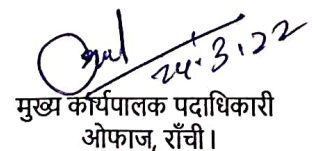 24.3.22
मुख्य कार्यपालक पदाधिकारी
ओफाज, राँची।